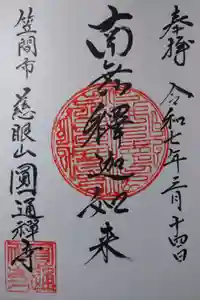 奉拝
令和七年三月十四日
南無釋迦如来
笠間市 慈眼山 圓通禅寺